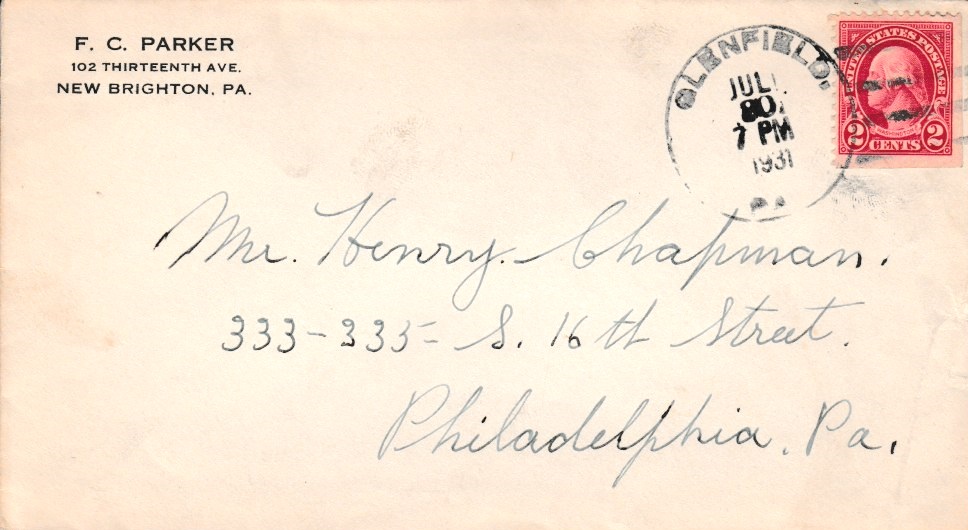 F. C. PARKER
102 THIRTEENTH AVE.
NEW BRIGHTON, PA.
GLENFIELD,
JUL
30
7 PM
1931
PA
UNITED STATES POSTAGE
WASHINGTON
2 CENTS 2
Mr. Henry Chapman.
333-335- S. 16th Street.
Philadelphia, Pa.